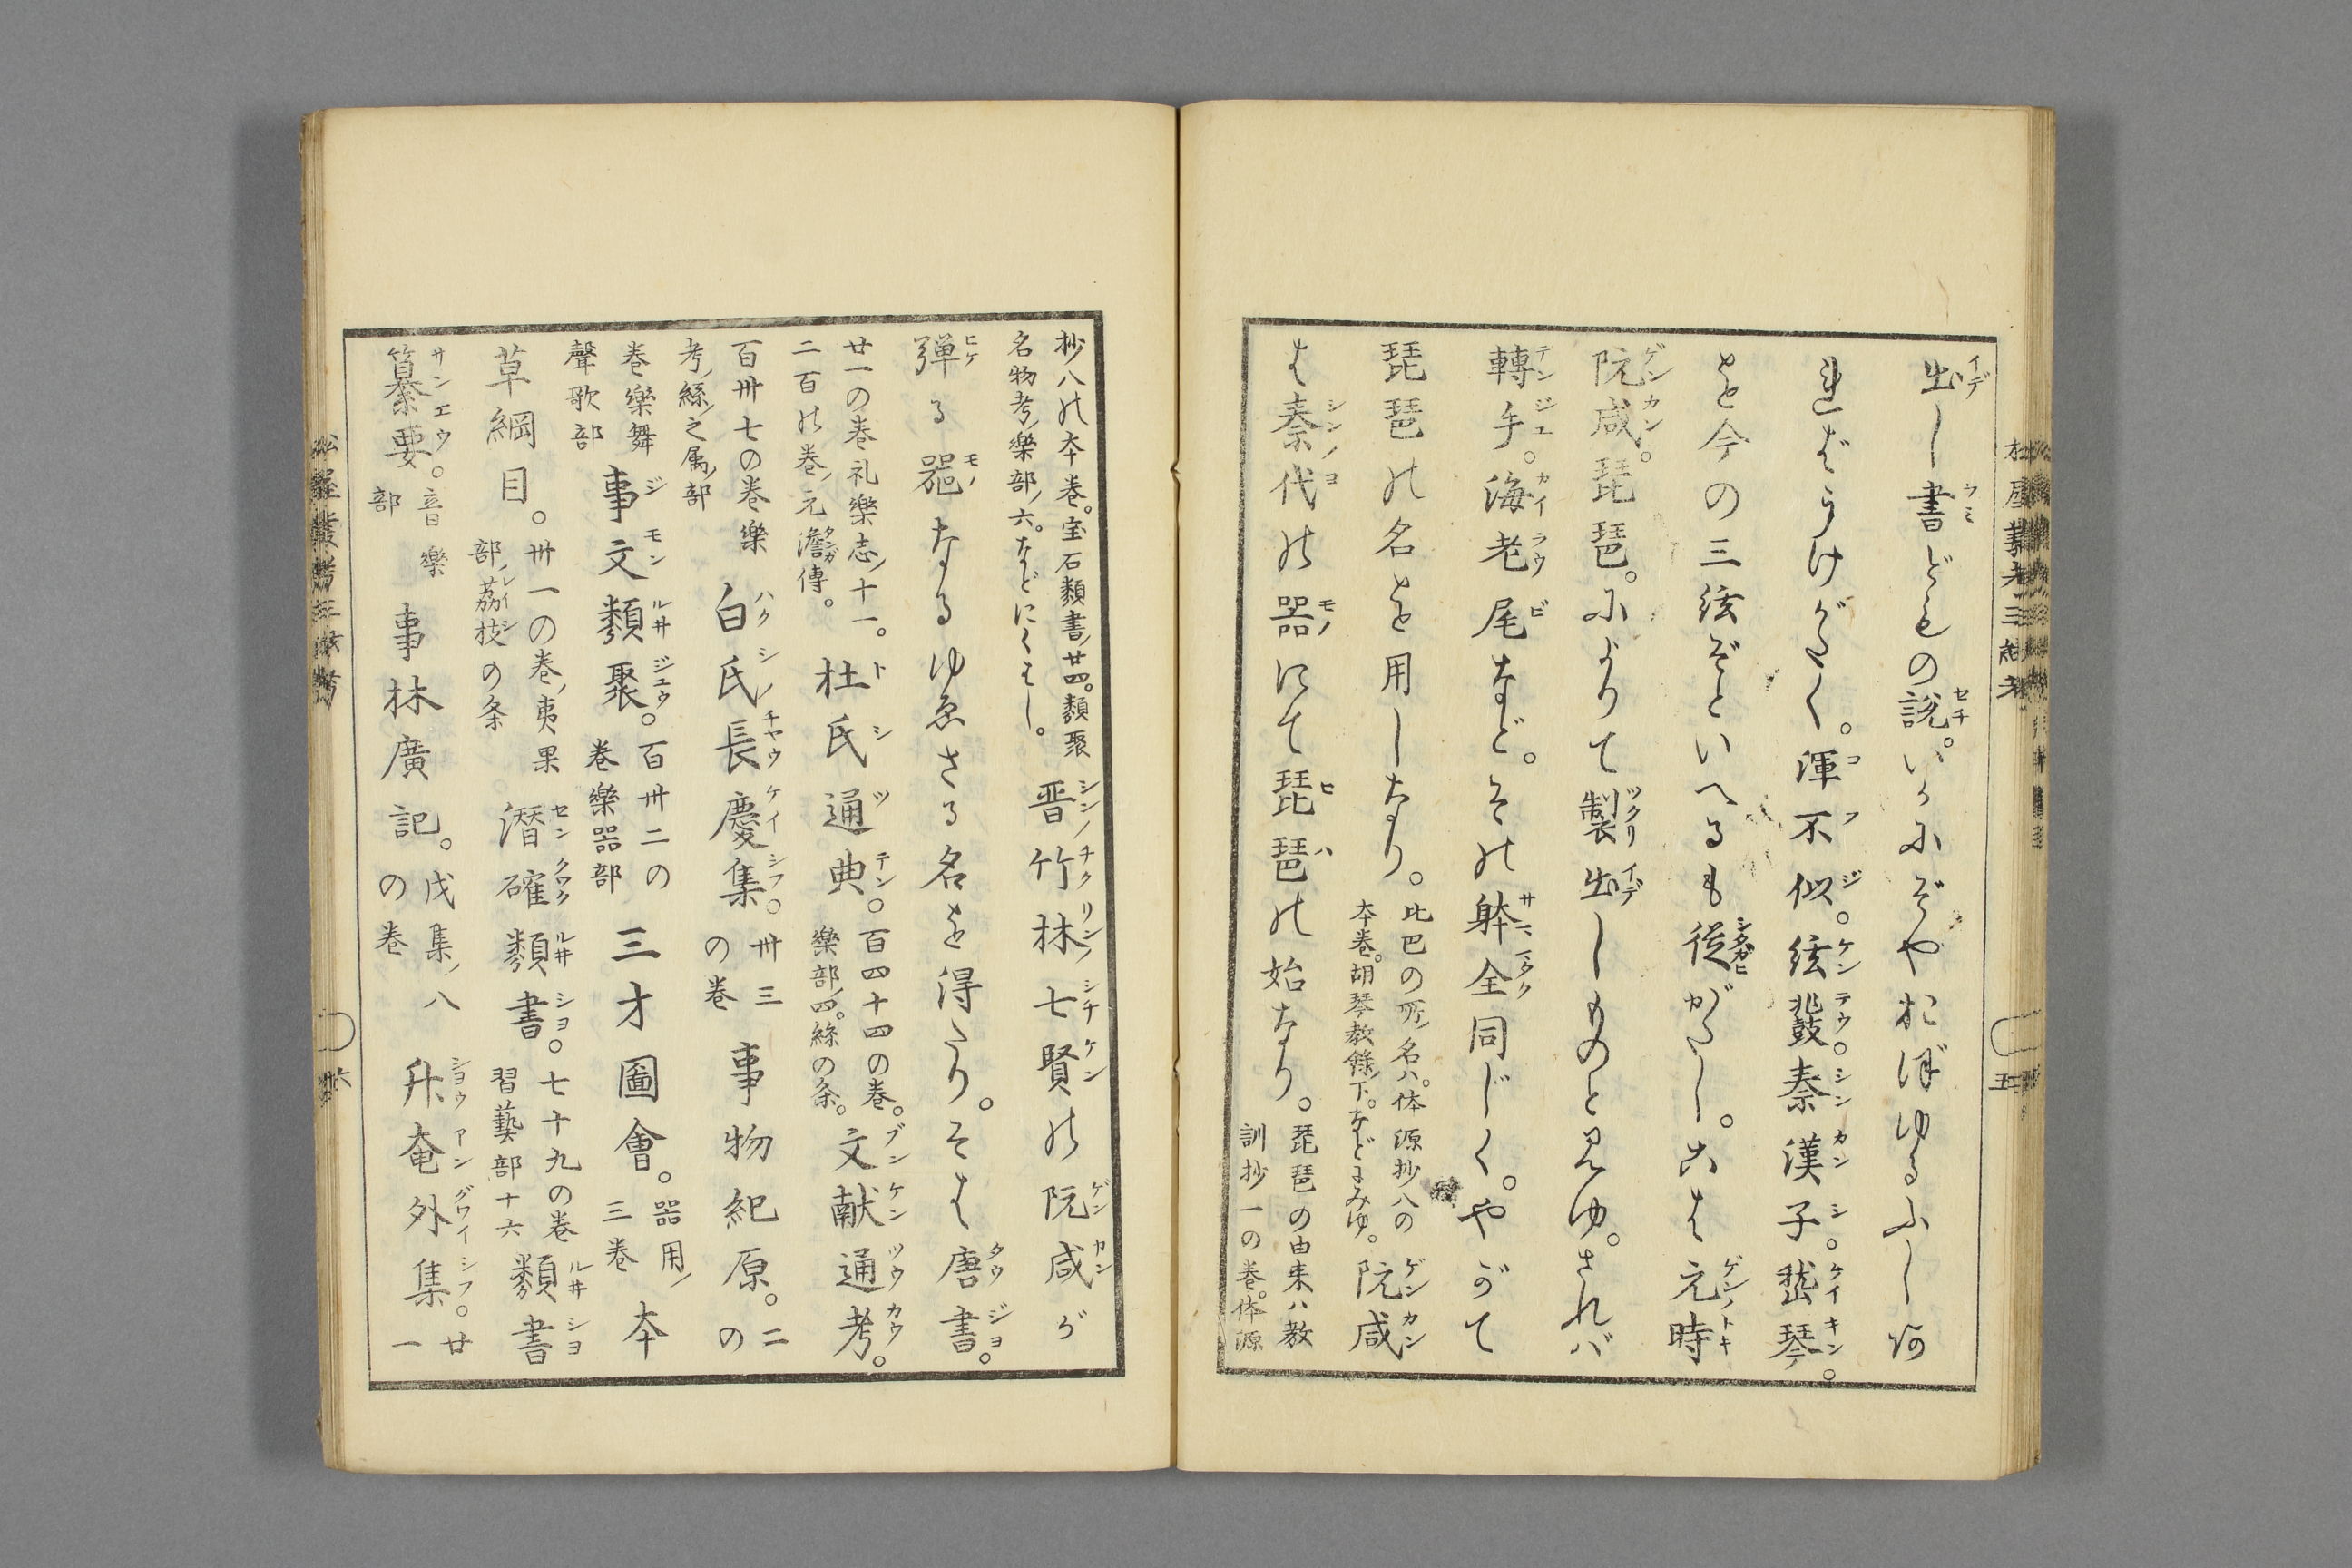 出し書どもの説。いかにぞやおぼゆるふし阿
ればうけがたく。渾不似。絃鼗。秦漢子。嵆琴。
を今の三絃ぞといへるも従がたし。こは元時
阮咸。琵琶。によりて製出しものと見ゆ。されバ
轉手。海老尾など。その躰全同じく。やがて
琵琶の名を用しなり。
比巴の所ノ名ハ。体源抄八の
本巻。胡琴教録ノ下。などにみゆ。
阮咸
は秦代の器にて琵琶の始なり。
琵琶の由来ハ教
訓抄一の巻。体源
抄八の本巻。宝石類書ノ廿四。類聚
名物考ノ樂部ノ六。などにくはし。
晋ノ竹林ノ七賢の阮咸が
弾る器なるゆゑさる名を得たり。そは唐書。
廿一の巻礼樂志ノ十一。
二百の巻ノ元澹傳。
杜氏通典。
百四十四の巻。
樂部ノ四。絲の条。
文献通考。
百卅七の巻樂
考ノ絲ノ之属ノ部
白氏長慶集。
卅三
の巻
事物紀原。
二
の
巻樂舞
聲歌部
事文類聚。
百卅二の
巻樂器部
三才圖會。
器用ノ
三巻
本
草綱目。
卅一の巻ノ夷果
部ノ荔枝の条
潛確類書。
七十九の巻
習藝部十六
類書
纂要。
音樂
部
事林廣記。
戊集ノ八
の巻
升奄外集。
廿
一